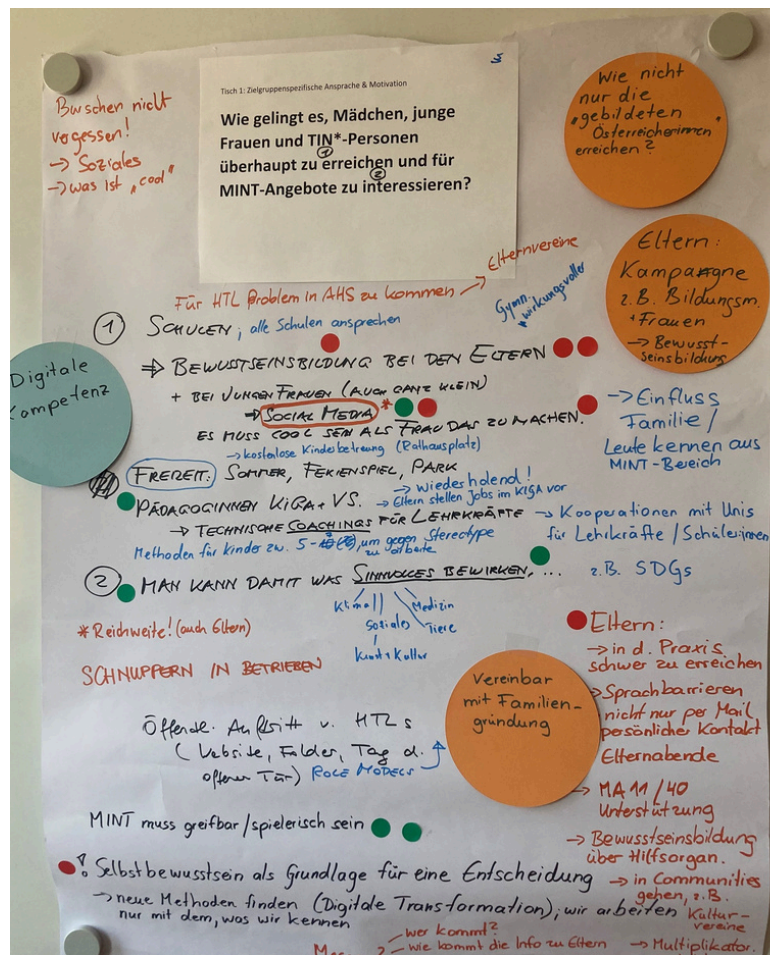 Burschen nicht
vergessen!
→ Soziales
→ was ist „cool"
Tisch 1: Zielgruppenspezifische Ansprache & Motivation
Wie gelingt es, Mädchen, junge
Frauen und TIN*-Personen
überhaupt zu erreichen und für
MINT-Angebote zu interessieren?
①
②
Wie nicht
nur die
„gebildeten
Österreicherinnen"
erreichen?
Eltern:
Kampagne
z.B. Bildungsm.
+ Frauen
→ Bewusst-
seinsbildung
Digitale
Kompetenz
Für HTL Problem in AHS zu kommen → Elternvereine
Gymn.
wirkungsvoller
① SCHULEN; alle Schulen ansprechen
⇒ BEWUSSTSEINSBILDUNG BEI DEN ELTERN
+ BEI JUNGEN FRAUEN (AUCH GANZ KLEIN)
→ SOCIAL MEDIA *
ES MUSS COOL SEIN ALS FRAU DAS ZU MACHEN.
→ kostenlose Kinderbetreuung (Rathausplatz)
→ Einfluss
Familie /
Leute kennen aus
MINT-Bereich
FREIZEIT: SOMMER, FERIENSPIEL, PARK
→ wiederholend!
PÄDAGOGINNEN KIGA + VS. → Eltern stellen Jobs im KIGA vor
→ TECHNISCHE COACHINGS FÜR LEHRKRÄFTE → Kooperationen mit Unis
für Lehrkräfte / Schüler:innen
Methoden für Kinder zw. 5- , um gegen Stereotype
zu arbeite
② MAN KANN DAMIT WAS SINNVOLLES BEWIRKEN, ... z.B. SDGs
Klima
Soziales
Medizin
Tiere
Kunst + Kultur
* Reichweite! (auch Eltern)
SCHNUPPERN IN BETRIEBEN
Vereinbar
mit Familien-
gründung
Eltern:
→ in d. Praxis
schwer zu erreichen
→ Sprachbarrieren
nicht nur per Mail
persönlicher Kontakt
Elternabende
→ MA 11 / 40
Unterstützung
→ Bewusstseinsbildung
über Hilfsorgan.
→ in Communities
gehen, z.B.
Kultur-
vereine
→ Multiplikator.
Öffentl. Auftritt v. HTLs
(Website, Folder, Tag d.
offenen Tür) ROLE MODELS
MINT muss greifbar / spielerisch sein
! Selbstbewusstsein als Grundlage für eine Entscheidung
→ neue Methoden finden (Digitale Transformation); wir arbeiten
nur mit dem, was wir kennen
wer kommt?
wie kommt die Info zu Eltern